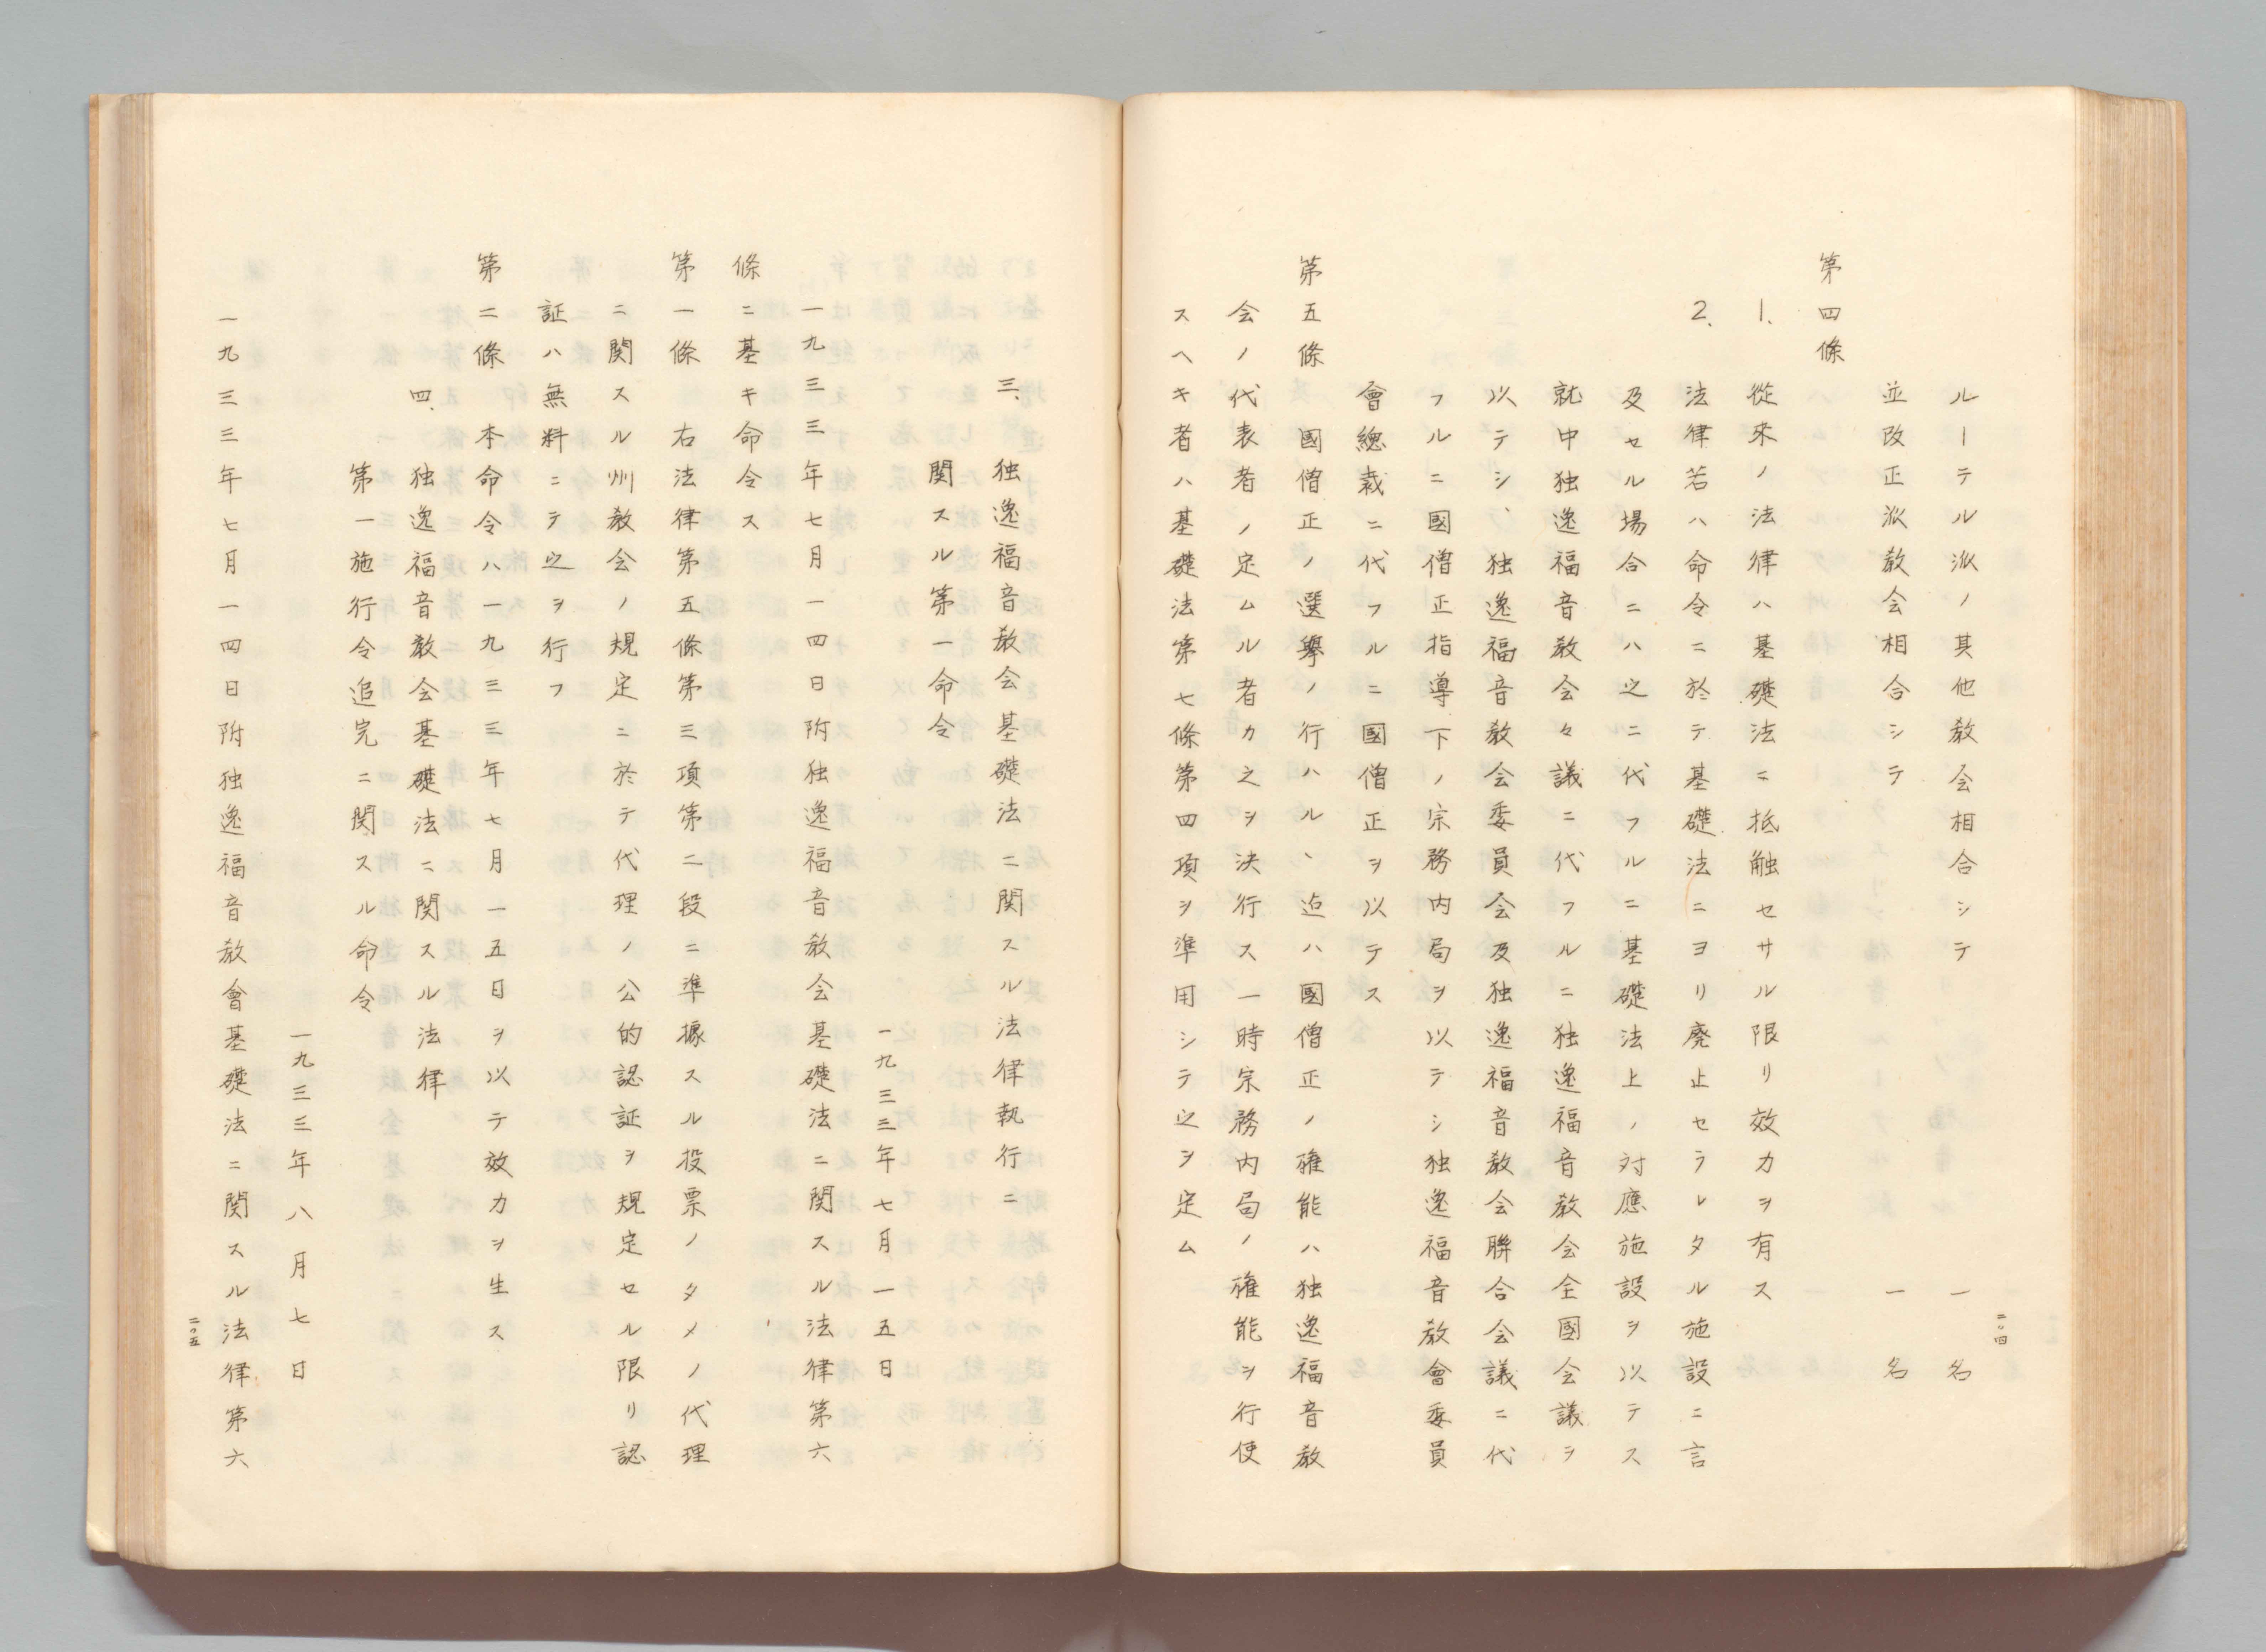 二〇四
ルーテル派ノ其他教会相合シテ 一名
並改正派教会相合シテ 一名
第四條
1. 從來ノ法律ハ基礎法ニ抵触セサル限リ效力ヲ有ス
2. 法律若ハ命令ニ於テ基礎法ニヨリ廃止セラレタル施設ニ言
及セル場合ニハ之ニ代フルニ基礎法上ノ対應施設ヲ以テス
就中独逸福音教会々議ニ代フルニ独逸福音教会全國会議ヲ
以テシ、独逸福音教会委員会及独逸福音教会聯合会議ニ代
フルニ國僧正指導下ノ宗務内局ヲ以テシ独逸福音教會委員
會總裁ニ代フルニ國僧正ヲ以テス
第五條 國僧正ノ選擧ノ行ハルヽ迠ハ國僧正ノ權能ハ独逸福音教
会ノ代表者ノ定ムル者カ之ヲ決行ス一時宗務内局ノ權能ヲ行使
スヘキ者ハ基礎法第七條第四項ヲ準用シテ之ヲ定ム
三、独逸福音教会基礎法ニ関スル法律執行ニ
関スル第一命令
一九三三年七月一五日
一九三三年七月一四日附独逸福音教会基礎法ニ関スル法律第六
條ニ基キ命令ス
第一條 右法律第五條第三項第二段ニ準據スル投票ノタメノ代理
ニ関スル州教会ノ規定ニ於テ代理ノ公的認証ヲ規定セル限リ認
証ハ無料ニテ之ヲ行フ
第二條 本命令ハ一九三三年七月一五日ヲ以テ效力ヲ生ス
四、独逸福音教会基礎法ニ関スル法律
第一施行令追完ニ関スル命令
一九三三年八月七日
一九三三年七月一四日附独逸福音教會基礎法ニ関スル法律第六
二〇五